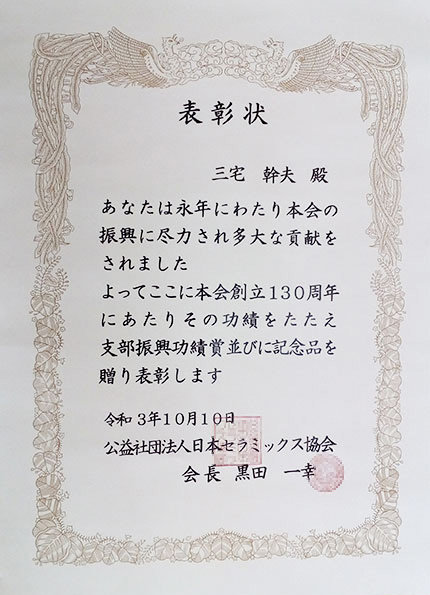 表彰状
三宅 幹夫 殿
あなたは永年にわたり本会の
振興に尽力され多大な貢献を
されました
よってここに本会創立130周年
にあたりその功績をたたえ
支部振興功績賞並びに記念品を
贈り表彰します
令和3年10月10日
公益社団法人日本セラミックス協会
会長 黒田 一幸